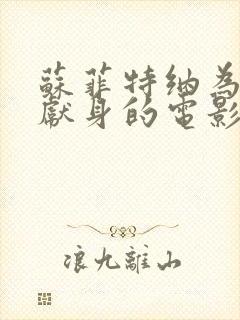 蘇菲特納為
獻身的電影
浪九離山